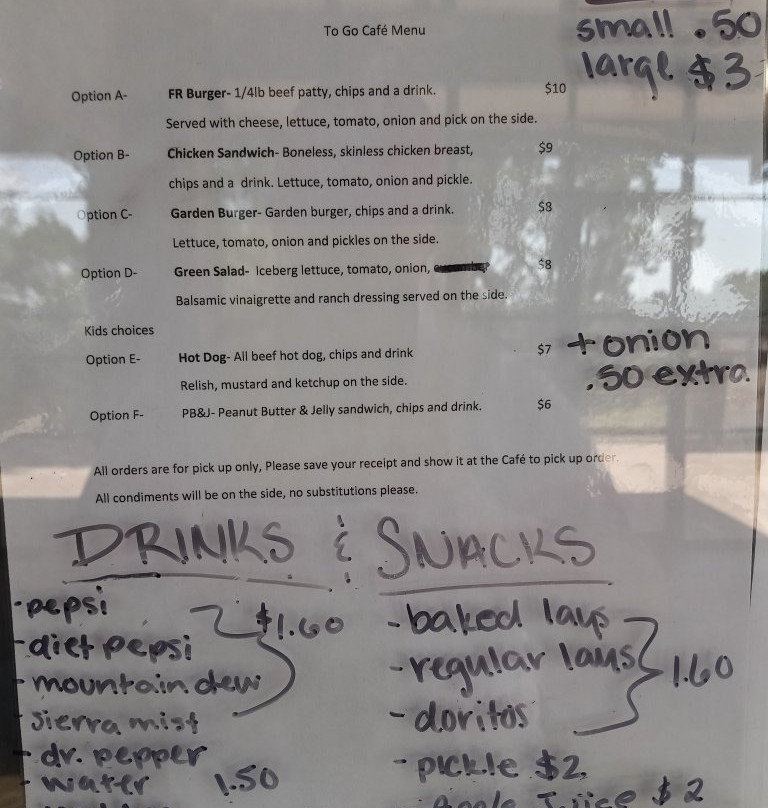 To Go Café Menu
small .50
large $3
Option A- FR Burger- 1/4lb beef patty, chips and a drink. $10
Served with cheese, lettuce, tomato, onion and pick on the side.
Option B- Chicken Sandwich- Boneless, skinless chicken breast, $9
chips and a drink. Lettuce, tomato, onion and pickle.
Option C- Garden Burger- Garden burger, chips and a drink. $8
Lettuce, tomato, onion and pickles on the side.
Option D- Green Salad- Iceberg lettuce, tomato, onion, $8
Balsamic vinaigrette and ranch dressing served on the side.
Kids choices
Option E- Hot Dog- All beef hot dog, chips and drink $7 + onion
Relish, mustard and ketchup on the side. .50 extra.
Option F- PB&J- Peanut Butter & Jelly sandwich, chips and drink. $6
All orders are for pick up only, Please save your receipt and show it at the Café to pick up order.
All condiments will be on the side, no substitutions please.
DRINKS & SNACKS
-pepsi
-diet pepsi $1.60
-mountain dew
-sierra mist
-dr. pepper
-water 1.50
-baked lays
-regular lays 1.60
-doritos
-pickle $2
$2